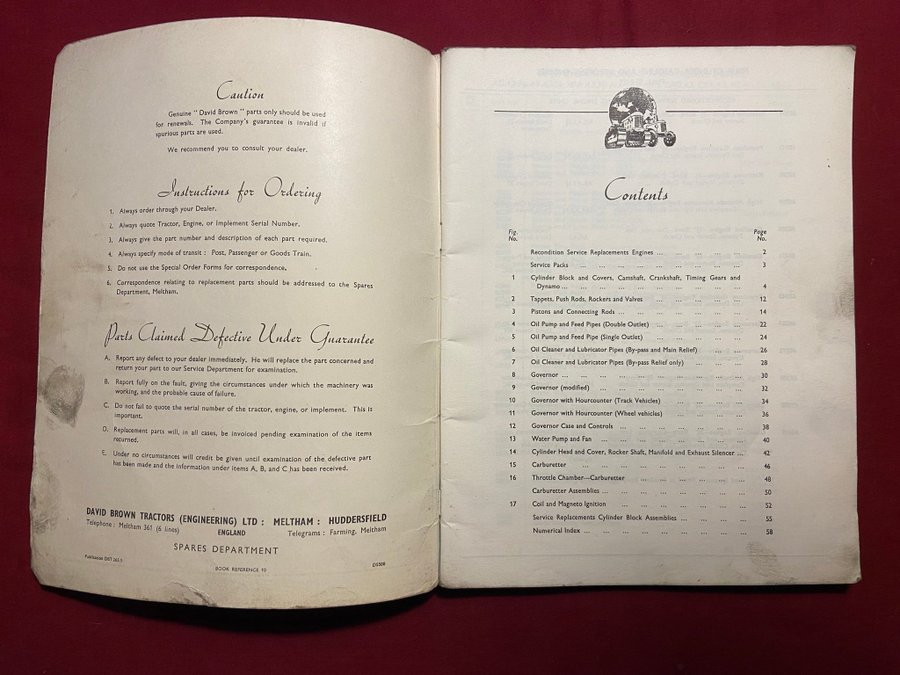 Caution
Genuine "David Brown" parts only should be used
for renewals. The Company's guarantee is invalid if
spurious parts are used.
We recommend you to consult your dealer.
Instructions for Ordering
1. Always order through your Dealer.
2. Always quote Tractor, Engine, or Implement Serial Number.
3. Always give the part number and description of each part required.
4. Always specify mode of transit : Post, Passenger or Goods Train.
5. Do not use the Special Order Forms for correspondence.
6. Correspondence relating to replacement parts should be addressed to the Spares
Department, Meltham.
Parts Claimed Defective Under Guarantee
A. Report any defect to your dealer immediately. He will replace the part concerned and
return your part to our Service Department for examination.
B. Report fully on the fault, giving the circumstances under which the machinery was
working, and the probable cause of failure.
C. Do not fail to quote the serial number of the tractor, engine, or implement. This is
important.
D. Replacement parts will, in all cases, be invoiced pending examination of the items
returned.
E. Under no circumstances will credit be given until examination of the defective part
has been made and the information under items A, B, and C has been received.
DAVID BROWN TRACTORS (ENGINEERING) LTD : MELTHAM : HUDDERSFIELD
Telephone : Meltham 361 (6 lines) ENGLAND Telegrams : Farming, Meltham
SPARES DEPARTMENT
Publication
BOOK REFERENCE
Contents
Fig. Page
No. No.
Recondition Service Replacements Engines ... ... ... ... ... 2
Service Packs ... ... ... ... ... ... ... ... 3
1 Cylinder Block and Covers, Camshaft, Crankshaft, Timing Gears and
Dynamo ... ... ... ... ... ... ... ... ... 4
2 Tappets, Push Rods, Rockers and Valves ... ... ... ... ... 12
3 Pistons and Connecting Rods ... ... ... ... ... ... ... 14
4 Oil Pump and Feed Pipes (Double Outlet) ... ... ... ... ... 22
5 Oil Pump and Feed Pipe (Single Outlet) ... ... ... ... ... 24
6 Oil Cleaner and Lubricator Pipes (By-pass and Main Relief) ... ... ... 26
7 Oil Cleaner and Lubricator Pipes (By-pass Relief only) ... ... ... 28
8 Governor ... ... ... ... ... ... ... ... ... 30
9 Governor (modified) ... ... ... ... ... ... ... ... 32
10 Governor with Hourcounter (Track Vehicles) ... ... ... ... 34
11 Governor with Hourcounter (Wheel vehicles) ... ... ... ... 36
12 Governor Case and Controls ... ... ... ... ... ... ... 38
13 Water Pump and Fan ... ... ... ... ... ... ... 40
14 Cylinder Head and Cover, Rocker Shaft, Manifold and Exhaust Silencer ... 42
15 Carburetter ... ... ... ... ... ... ... ... 46
16 Throttle Chamber—Carburetter ... ... ... ... ... ... 48
Carburetter Assemblies ... ... ... ... ... ... ... 50
17 Coil and Magneto Ignition ... ... ... ... ... ... ... 52
Service Replacements Cylinder Block Assemblies ... ... ... ... 55
Numerical Index ... ... ... ... ... ... ... ... 58